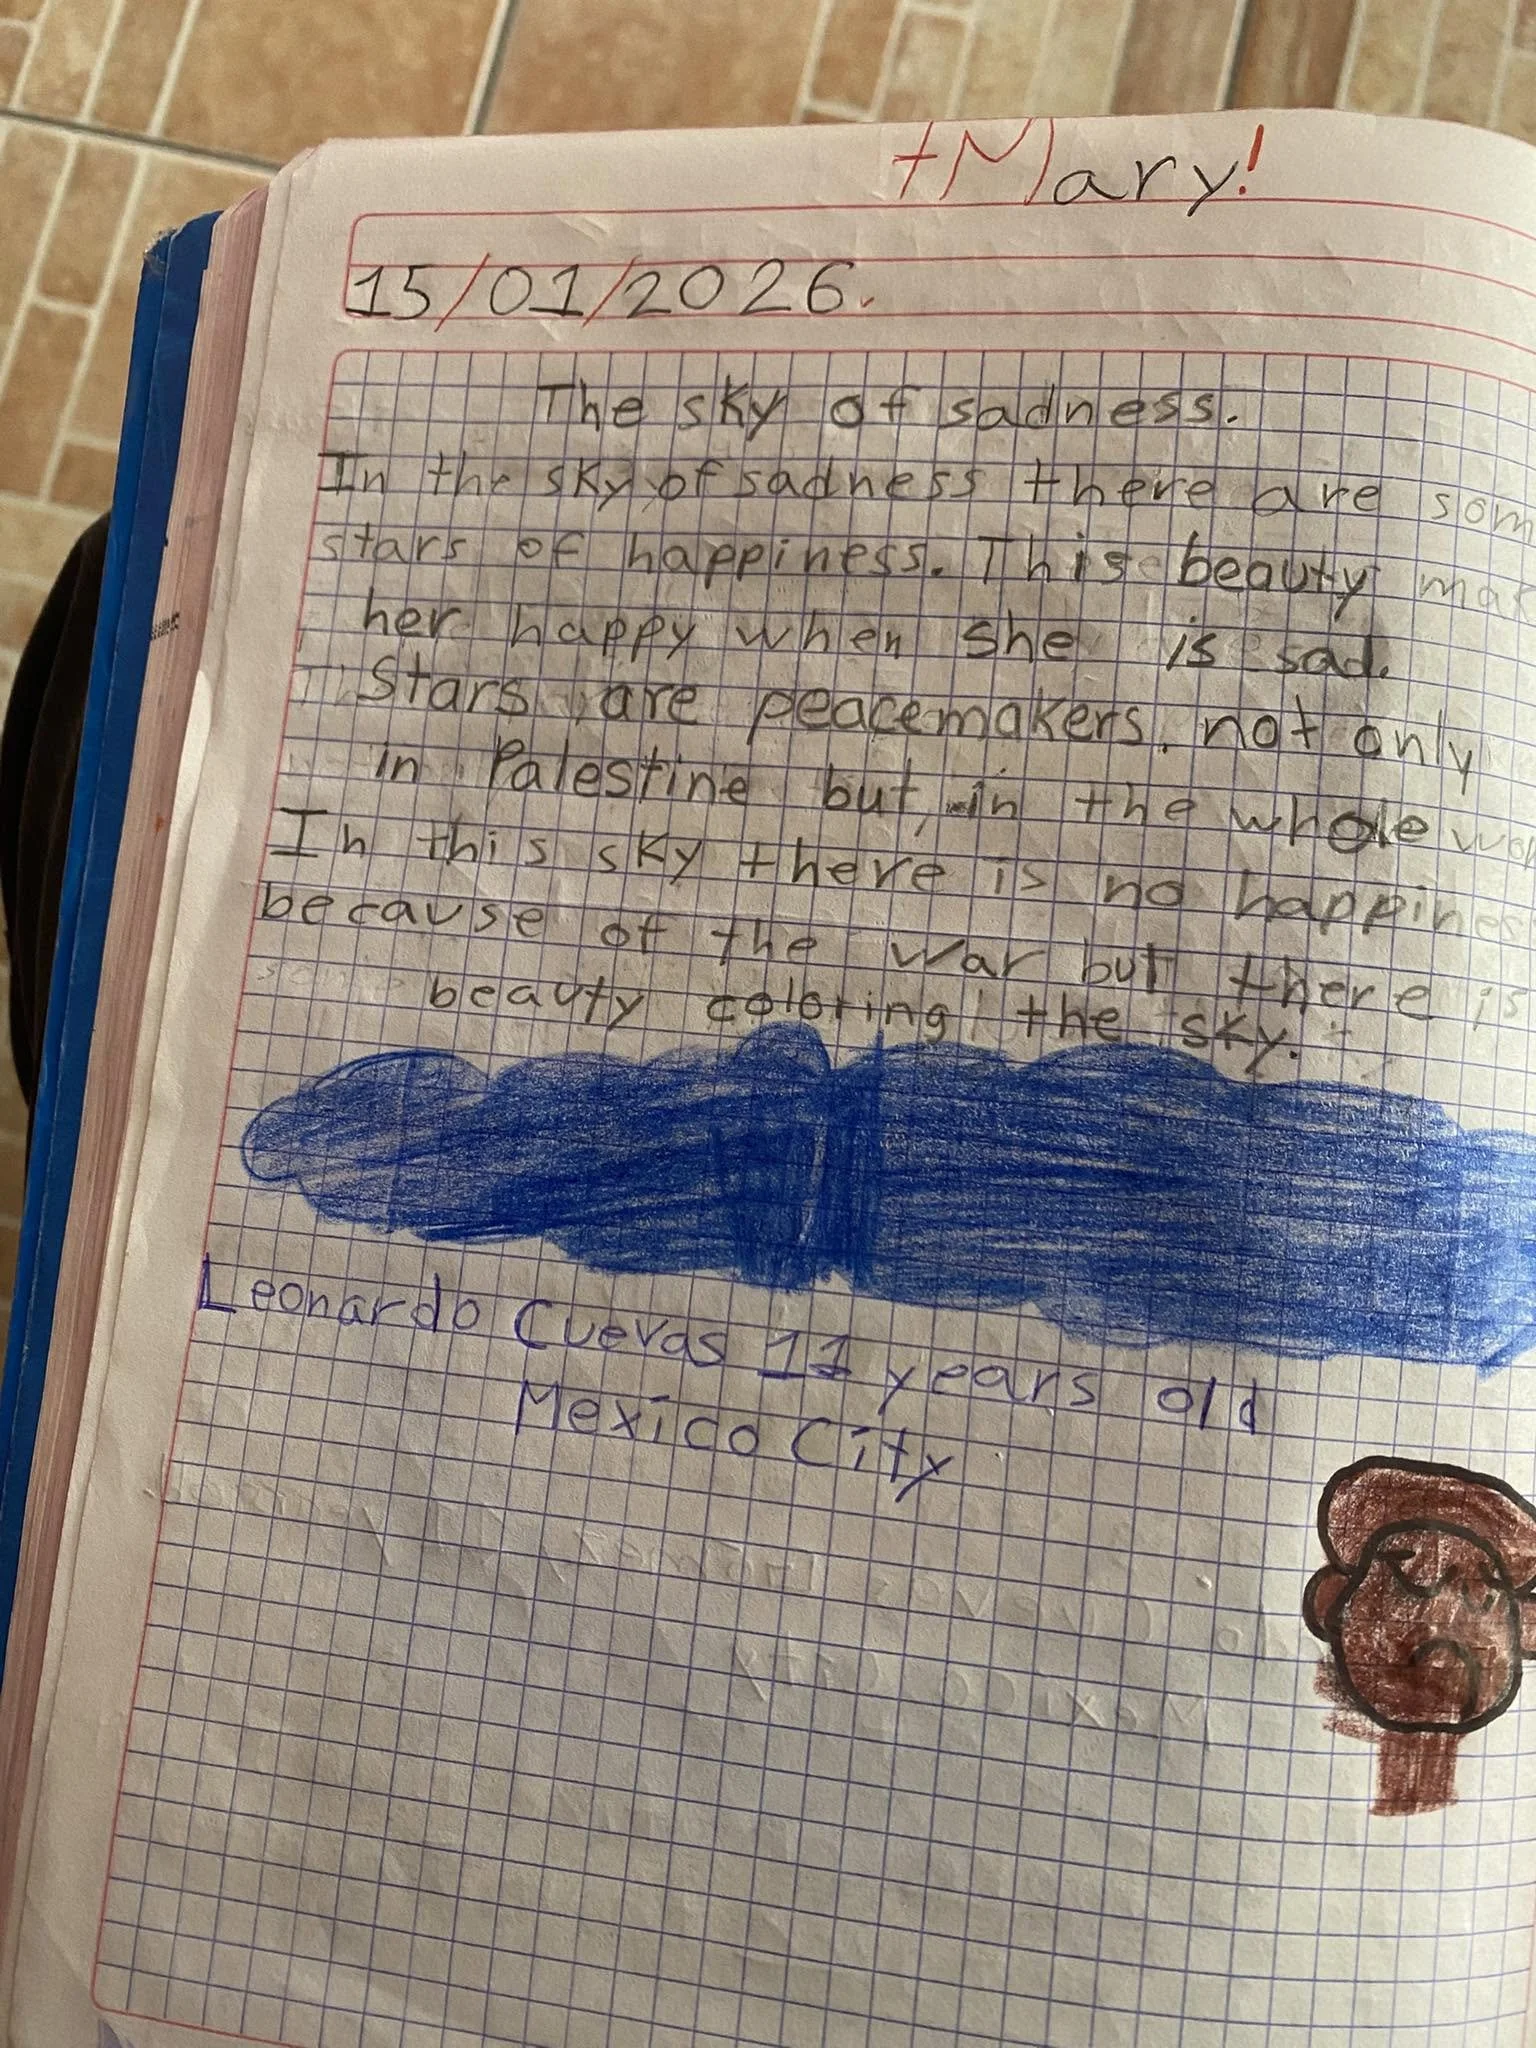 +Mary!
15/01/2026.
The sky of sadness.
In the sky of sadness there are som
stars of happiness. This beauty mak
her happy when she is sad.
Stars are peacemakers. not only
in Palestine but, in the whole wor
In this sky there is no happines
because of the war but there is
some beauty coloring the sky.
Leonardo Cuevas 11 years old
Mexico City